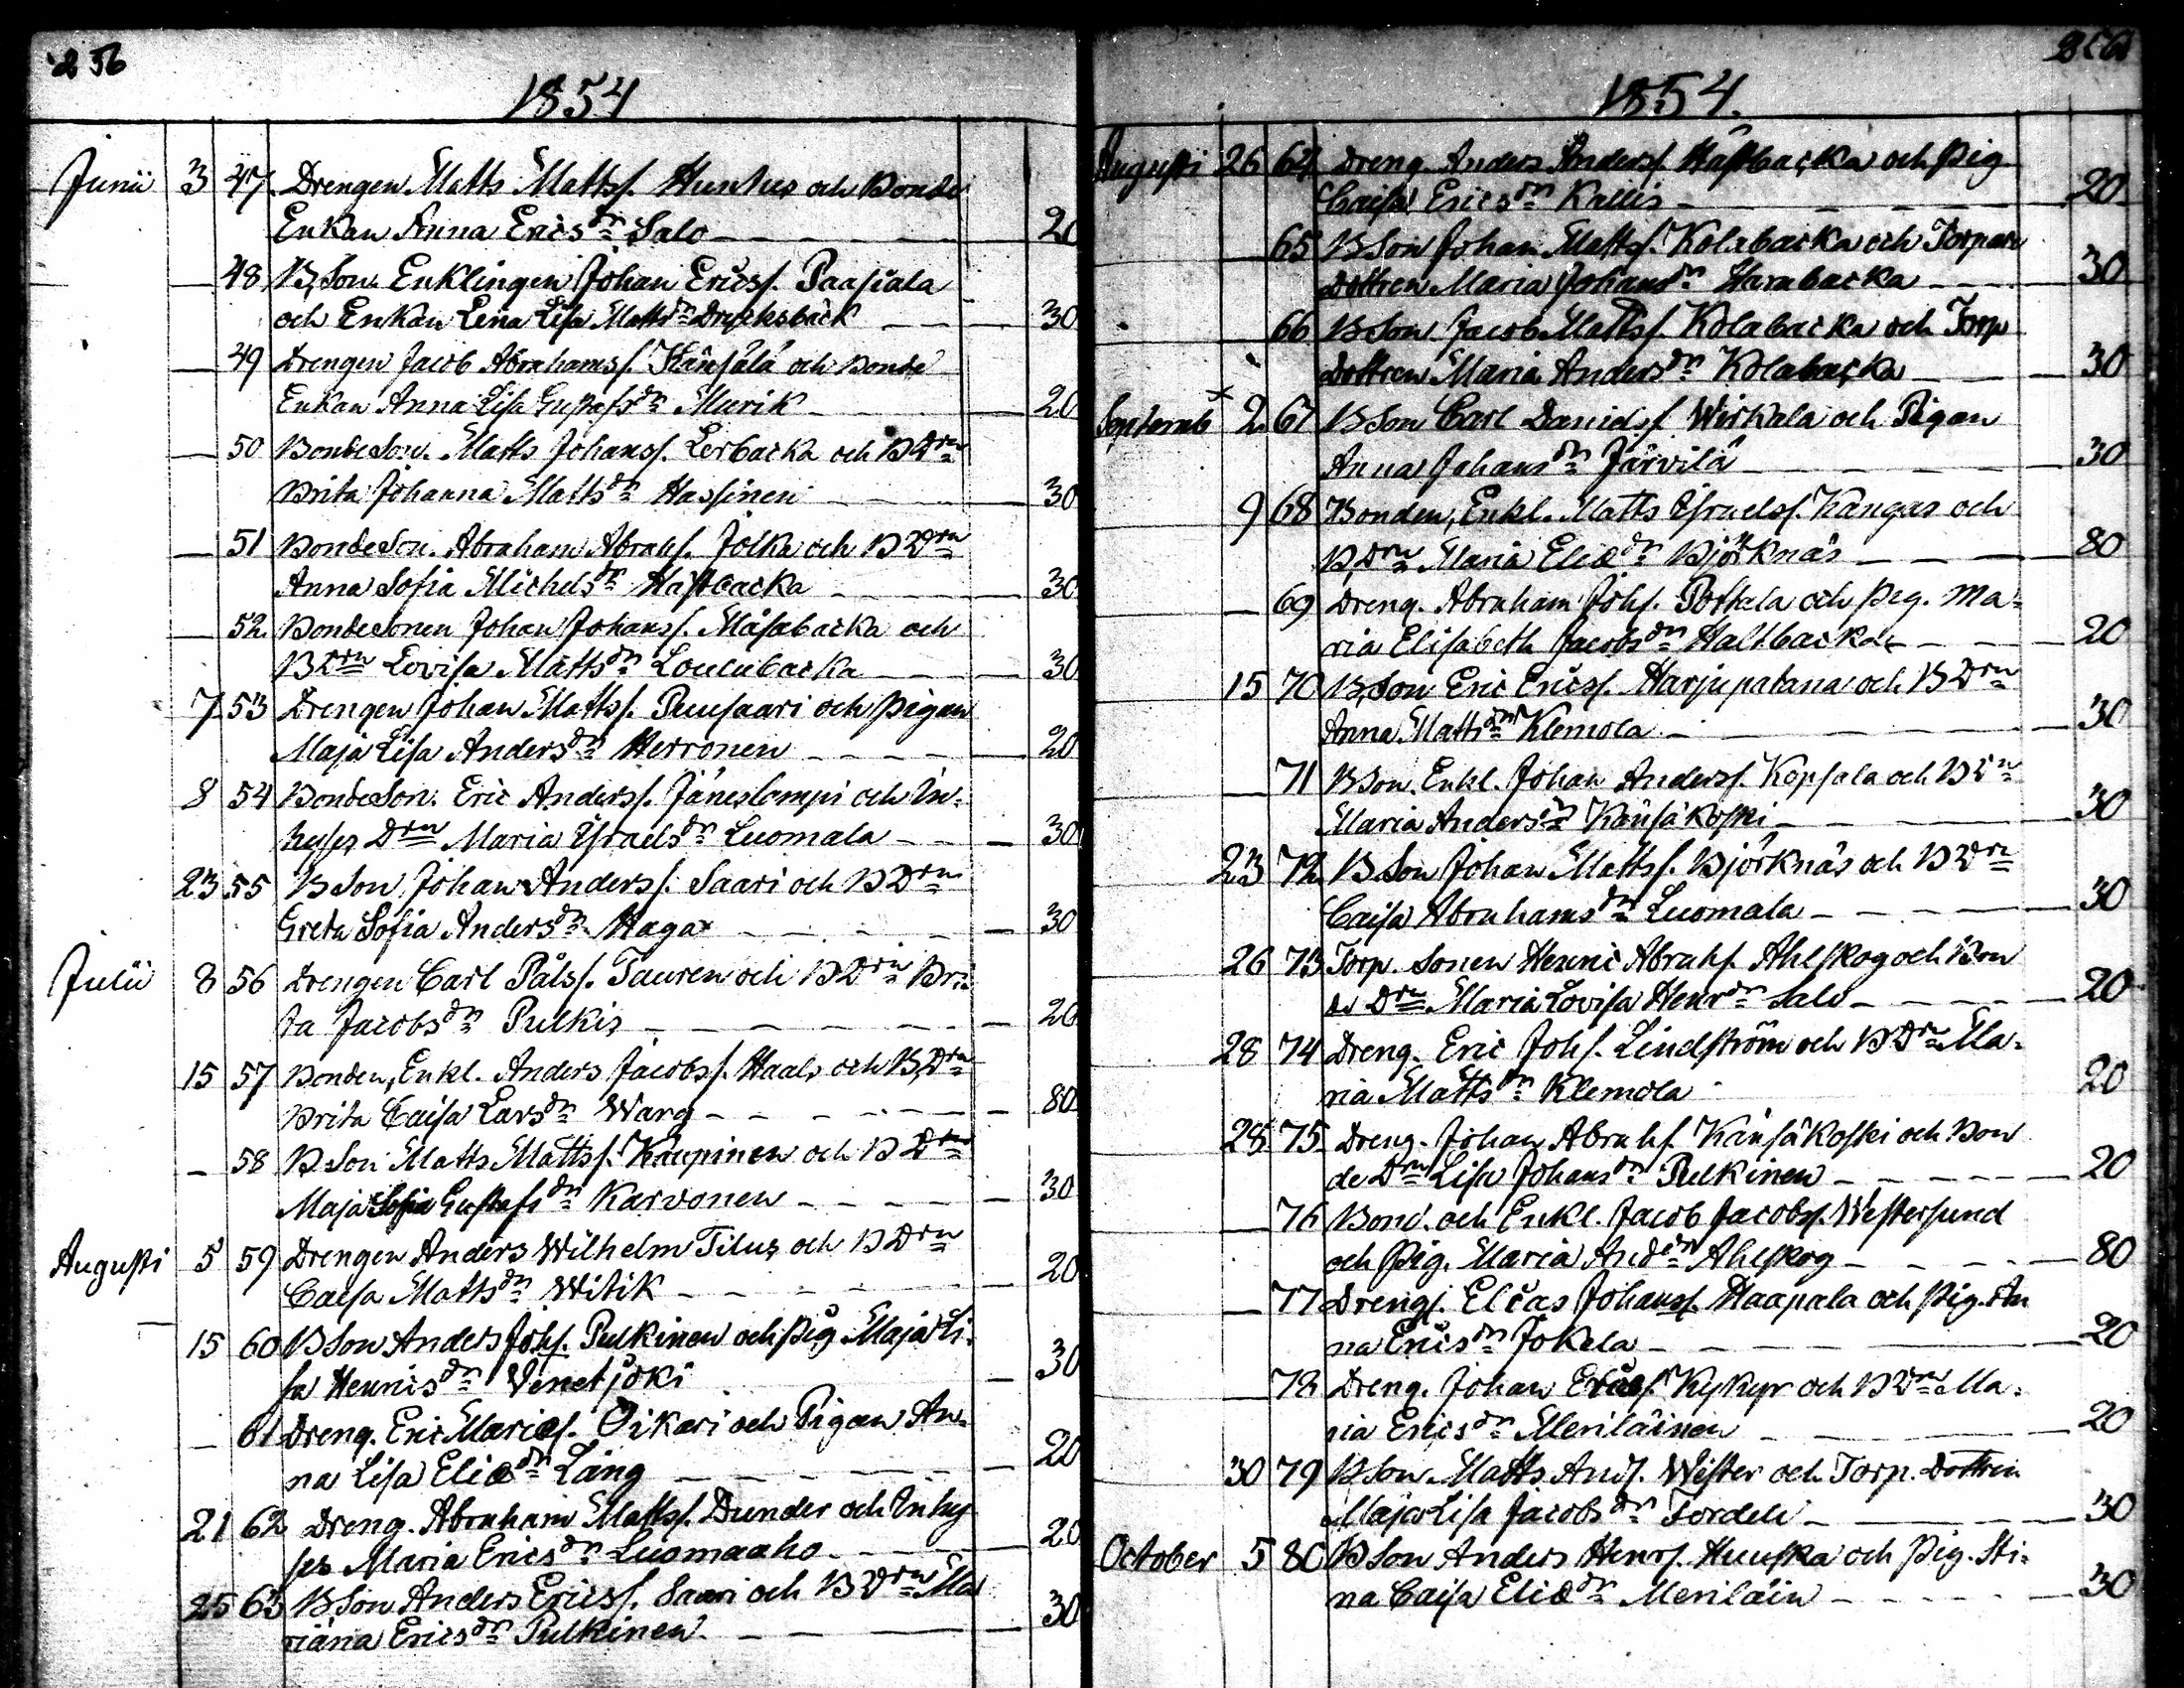 256
1854
Junii 3 47 Drengen Matts Mattsf. Huntus och Bonde
Enkan Anna Ericsdr Salo 20
48 B.Son. Enklingen Johan Ericsf. Paasiala
och Enkan Lena Lisa Mattsdr Drycksbäck 30
49 Drengen Jacob Abrahamsf. Känsälä och Bonde
Enkan Anna Lisa Gustafsdr Murik 20
50 BondeSon. Matts Johansf. Lerbacka och BDrn
Brita Johanna Mattsdr Hassinen 30
51 BondeSon. Abraham Abrahf. Jolka och BDrn
Anna Sofia Michelsdr Hästbacka 30
52. Bondesonen Johan Johansf. Måsabacka och
BDrn Lovisa Mattsdr Loulubacka 30
7 53 Drengen Johan Mattsf. Puusaari och Pigan
Maja Lisa Andersdr Herronen 20
8 54 BondeSon. Eric Andersf. Jäneslampi och In-
hyses Drn Maria Israelsdr Luomala 30
23 55 BSon Johan Andersf. Saari och BDrn
Greta Sofia Andersdr Haga 30
Julii 8 56 Drengen Carl Pålsf. Tauren och BDrn Bri-
ta Jacobsdr Pulkis 20
15 57 Bonden, Enkl. Anders Jacobsf. Haals och B,Drn
Brita Caisa Larsdr Warg 80
58 B Son Matts Mattsf. Kaupinen och BDrn
Maja Sofia Gustafsdr Karvonen 30
Augusti 5 59 Drengen Anders Wilhelm Tilus och BDrn
Caisa Mattsdr Witik 20
15 60 BSon Anders Johf. Pulkinen och Pig Maja Li-
sa Henricsdr Venetjoki 30
61 Dreng. Eric Marief. Oikari och Pigan An-
na Lisa Eliædr Lång 20
21 62 Dreng. Abraham Mattsf. Dunder och Inhy
ses Maria Ericsdr Luomaaho 20
25 63 BSon Anders Ericsf. Saari och BDrn Ma
riana Ericsdr Pulkinen 30
1854.
Augusti 26 64 Dreng. Anders Andersf. Hästbacka och Pig
Caisa Ericsdr Kallis 20
65 BSon Johan Mattsf. Kolabacka och Torpare
Dottren Maria Johansdr Harabacka 30
66 BSon Jacob Mattsf. Kolabacka och Torp
Dottren Maria Andersdr Kolabacka 30
Septemb 2 67 BSon Carl Danielsf Wirkala och Pigan
Anna Johansdr Järvilä 30
9 68 Bonden, Enkl. Matts Israelsf. Kangas och
B,Drn Maria Eliædr Björknäs 80
69 Dreng. Abraham Johf. Pottala och Pig. Ma-
ria Elisabeth Jacobsdr Haltbacka 20
15 70 B,Son Eric Ericsf. Harjupatana och BDrn
Anna Mattsdr Klemola 30
71 BSon, Enkl. Johan Andersf. Kopsala och BDrn
Maria Andersdr Känsäkoski 30
23 72 BSon Johan Mattsf. Björknäs och BDrn
Caisa Abrahamsdr Luomala 30
26 73 Torp. Sonen Henric Abrahf. Ahlskog och Bon
de Drn Maria Lovisa Henrdr Salo 20
28 74 Dreng. Eric Johf. Lindström och BDrn Ma-
ria Mattsdr Klemola 20
28 75 Dreng. Johan Abrahf. Känsäkoski och Bon
de Drn Lisa Johansdr Pulkinen 20
76 Bond. och Enkl. Jacob Jacobsf. Westersund
och Pig. Maria Anddr Ahlskog 80
77 Drengf. Elias Johansf. Haapala och Pig. An
na Ericsdr Jokela 20
78 Dreng. Johan Ericsf. Kykyr och BDrn Ma-
ria Ericsdr Meriläinen 20
30 79 BSon Matts Andf. Wister och Torp. Dottren
Maja Lisa Jacobsdr Fordell 30
October 5 80 BSon Anders Henrsf. Huuska och Pig. Sti-
na Caisa Eliædr Meriläin 30